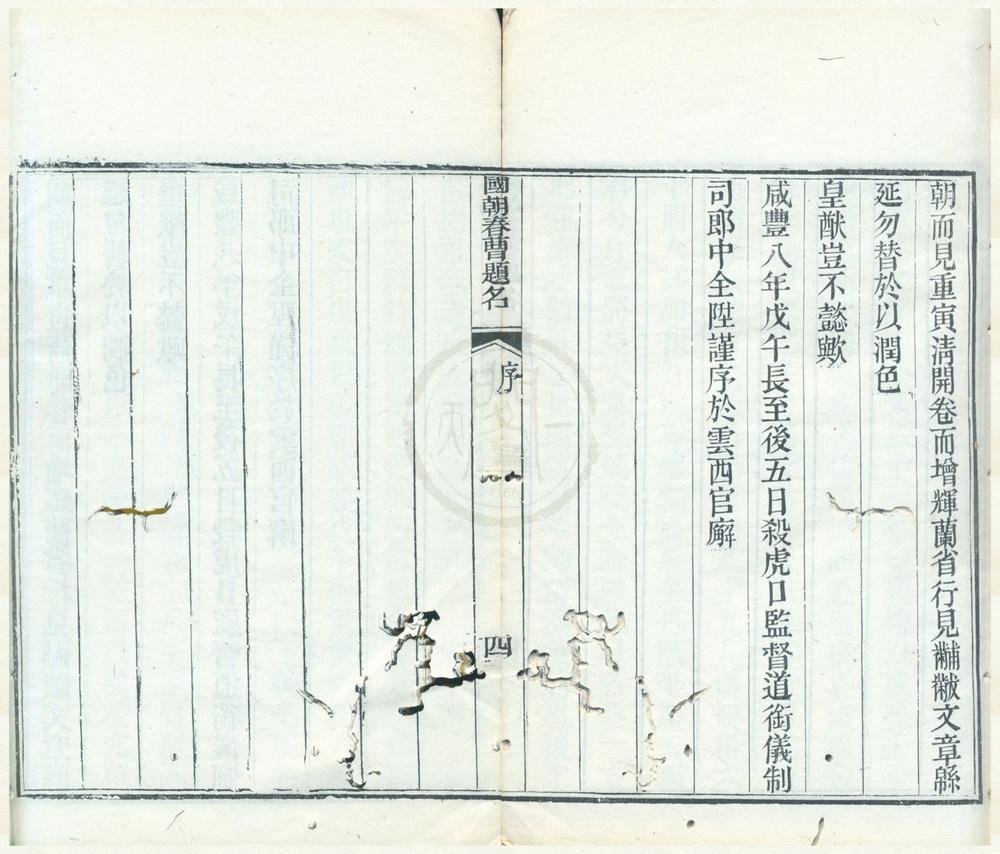 朝而見重寅淸開卷而增輝蘭省行見黼黻文章緜
延勿替於以潤色
皇猷豈不懿歟
咸豐八年戊午長至後五日殺虎口監督道銜儀制
司郎中全陞謹序於雲西官廨
國朝春曹題名
序
四